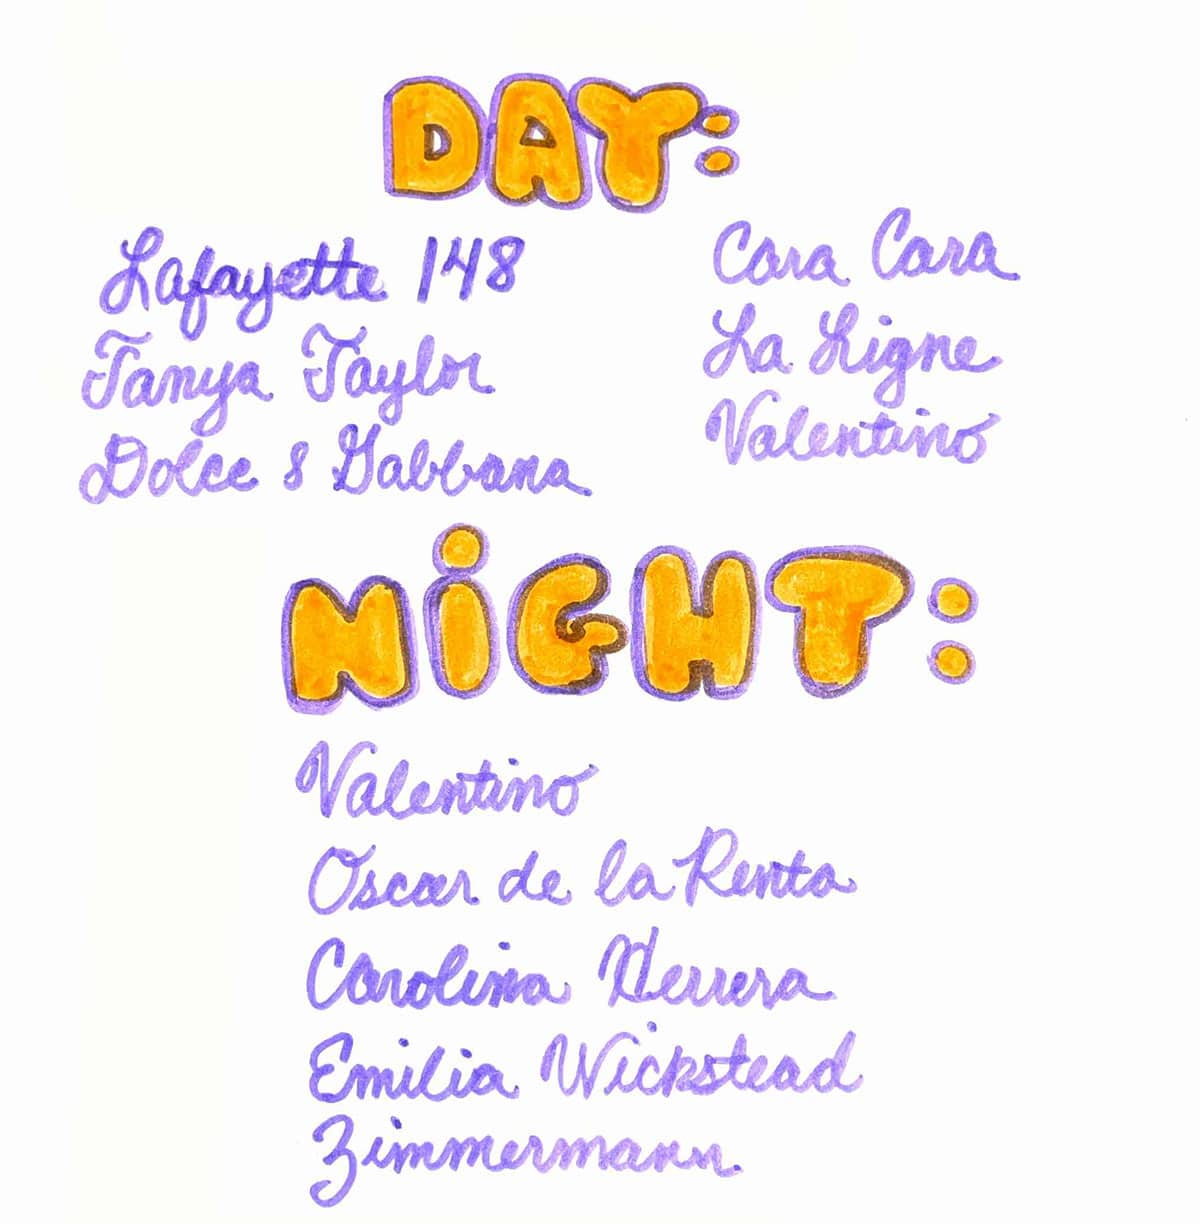 DAY:
Lafayette 148
Tanya Taylor
Dolce & Gabbana
Cara Cara
La Ligne
Valentino
NiGHT:
Valentino
Oscar de la Renta
Carolina Herrera
Emilia Wickstead
Zimmermann